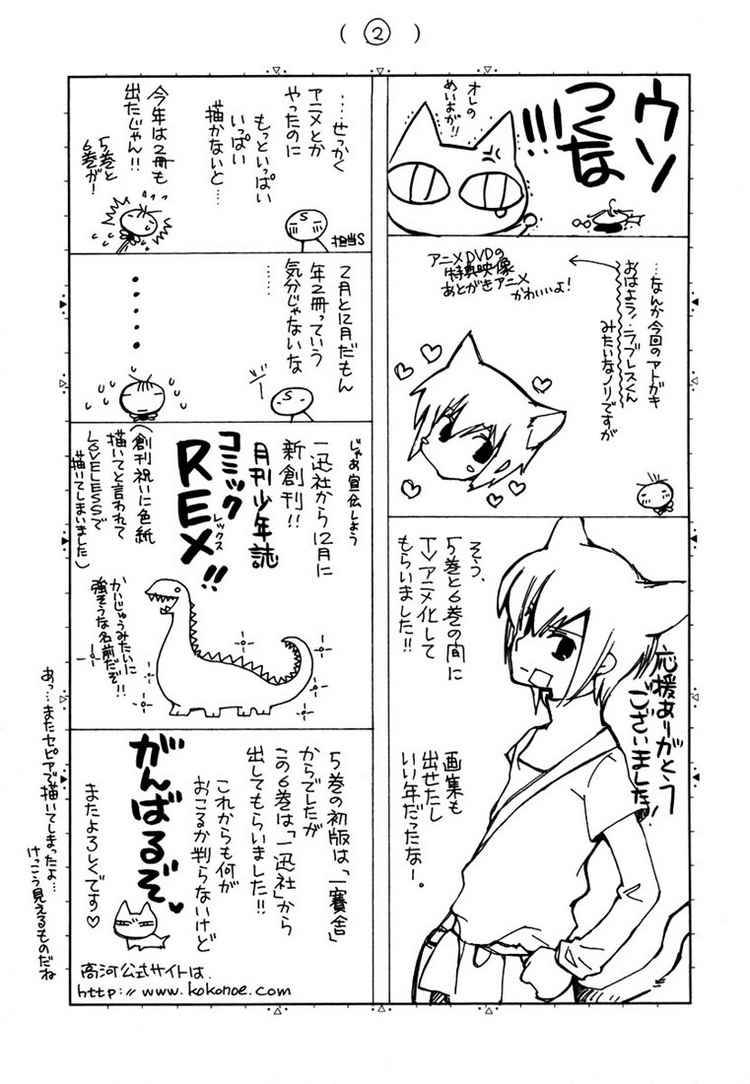 (②)
ウソ
つくな
!!!
オレの
めいよが!!
…なんか今回のアトガキ
おはよう!ラブレスくん
みたいなノリですが
アニメDVDの
特典映像
あとがきアニメ
かわいいよ!
そう、
5巻と6巻の間に
TVアニメ化して
もらいました!!
応援ありがとう
ございました!
画集も
出せたし
いい年だったなー。
…せっかく
アニメとか
やったのに
もっといっぱい
いっぱい
描かないと…
S
担当S
今年は2冊も
出たじゃん!!
5巻と
6巻が!
2月と12月だもん
年2冊っていう
気分じゃないな
…
S
‥‥‥
じゃあ宣伝しよう
一迅社から12月に
新創刊!!
月刊少年誌
コミック
REX!!
レックス
(創刊祝いに色紙
描いてと言われて
LOVELESSで
描いてしまいました)
かいじゅうみたいに
強そうな名前だぞ!!
5巻の初版は、「一賽舎」
からでしたが
この6巻は「一迅社」から
出してもらいました!!
これからも何が
おこるか判らないけど
がんばるぞ
またよろしくです♡
高河公式サイトは.
http://www.kokonoe.com
あっ…またセピアで描いてしまったよ…
けっこう見えるものだね